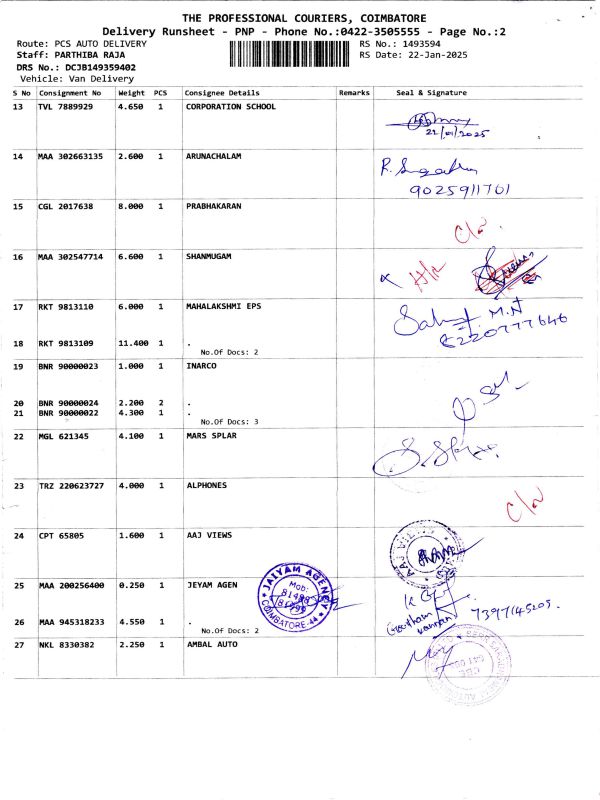 THE PROFESSIONAL COURIERS, COIMBATORE
Delivery Runsheet - PNP - Phone No.:0422-3505555 - Page No.:2
Route: PCS AUTO DELIVERY RS No.: 1493594
Staff: PARTHIBA RAJA RS Date: 22-Jan-2025
DRS No.: DCJB149359402
Vehicle: Van Delivery
S No Consignment No Weight PCS Consignee Details Remarks Seal & Signature
13 TVL 7889929 4.650 1 CORPORATION SCHOOL
22/01/2025
14 MAA 302663135 2.600 1 ARUNACHALAM
9025911701
15 CGL 2017638 8.000 1 PRABHAKARAN
16 MAA 302547714 6.600 1 SHANMUGAM
17 RKT 9813110 6.000 1 MAHALAKSHMI EPS
M.N
18 RKT 9813109 11.400 1 .
No.Of Docs: 2
19 BNR 90000023 1.000 1 INARCO
20 BNR 90000024 2.200 2 .
21 BNR 90000022 4.300 1 .
No.Of Docs: 3
22 MGL 621345 4.100 1 MARS SPLAR
23 TRZ 220623727 4.000 1 ALPHONES
24 CPT 65805 1.600 1 AAJ VIEWS
25 MAA 200256400 0.250 1 JEYAM AGEN
JAIYAM AGENCY
Mob:
COIMBATORE-44
7397145205.
26 MAA 945318233 4.550 1 .
No.Of Docs: 2
27 NKL 8330382 2.250 1 AMBAL AUTO